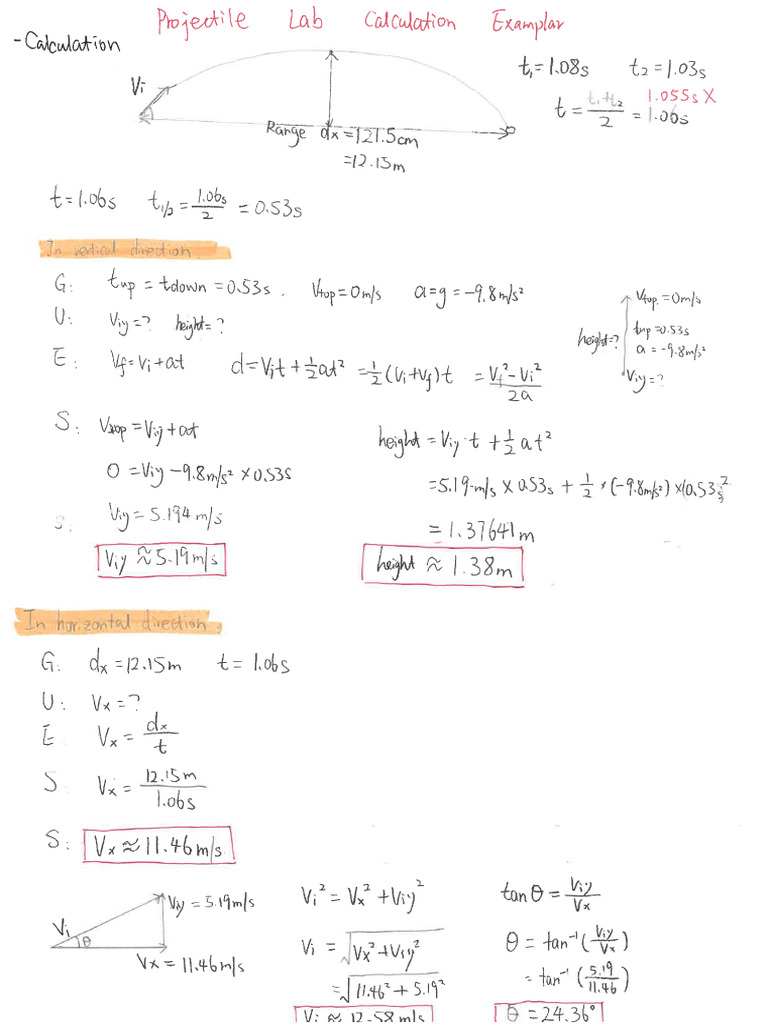 Projectile Lab Calculation Examplar
- Calculation
t₁=1.08s t₂=1.03s
1.055s X
t = (t₁+t₂)/2 = 1.06s
Vi
Range dx = 121.5cm
= 12.15m
t=1.06s t1/2 = 1.06s/2 = 0.53s
In vertical direction.
G: tup = tdown = 0.53s. Vtop = 0m/s a=g=-9.8m/s²
U: Viy=? height=?
E: Vf=Vi+at d=Vit+½at² =½(Vi+Vf)t = (Vf²-Vi²)/2a
Vtop.=0m/s
tup=0.53s
height=?
a=-9.8m/s²
Viy=?
S: Vtop=Viy+at
0=Viy-9.8m/s²×0.53s
S: Viy=5.194m/s
Viy≈5.19m/s
height=Viy·t+½at²
=5.19m/s×0.53s+½×(-9.8m/s²)×(0.53s)²
=1.37641m
height≈1.38m
In horizontal direction.
G: dx=12.15m t=1.06s
U: Vx=?
E: Vx=dx/t
S: Vx=12.15m/1.06s
S: Vx≈11.46m/s
Viy=5.19m/s
Vi
θ
Vx=11.46m/s
Vi²=Vx²+Viy²
Vi=√(Vx²+Viy²)
=√(11.46²+5.19²)
Vi≈12.58m/s
tanθ=Viy/Vx
θ=tan⁻¹(Viy/Vx)
=tan⁻¹(5.19/11.46)
θ=24.36°